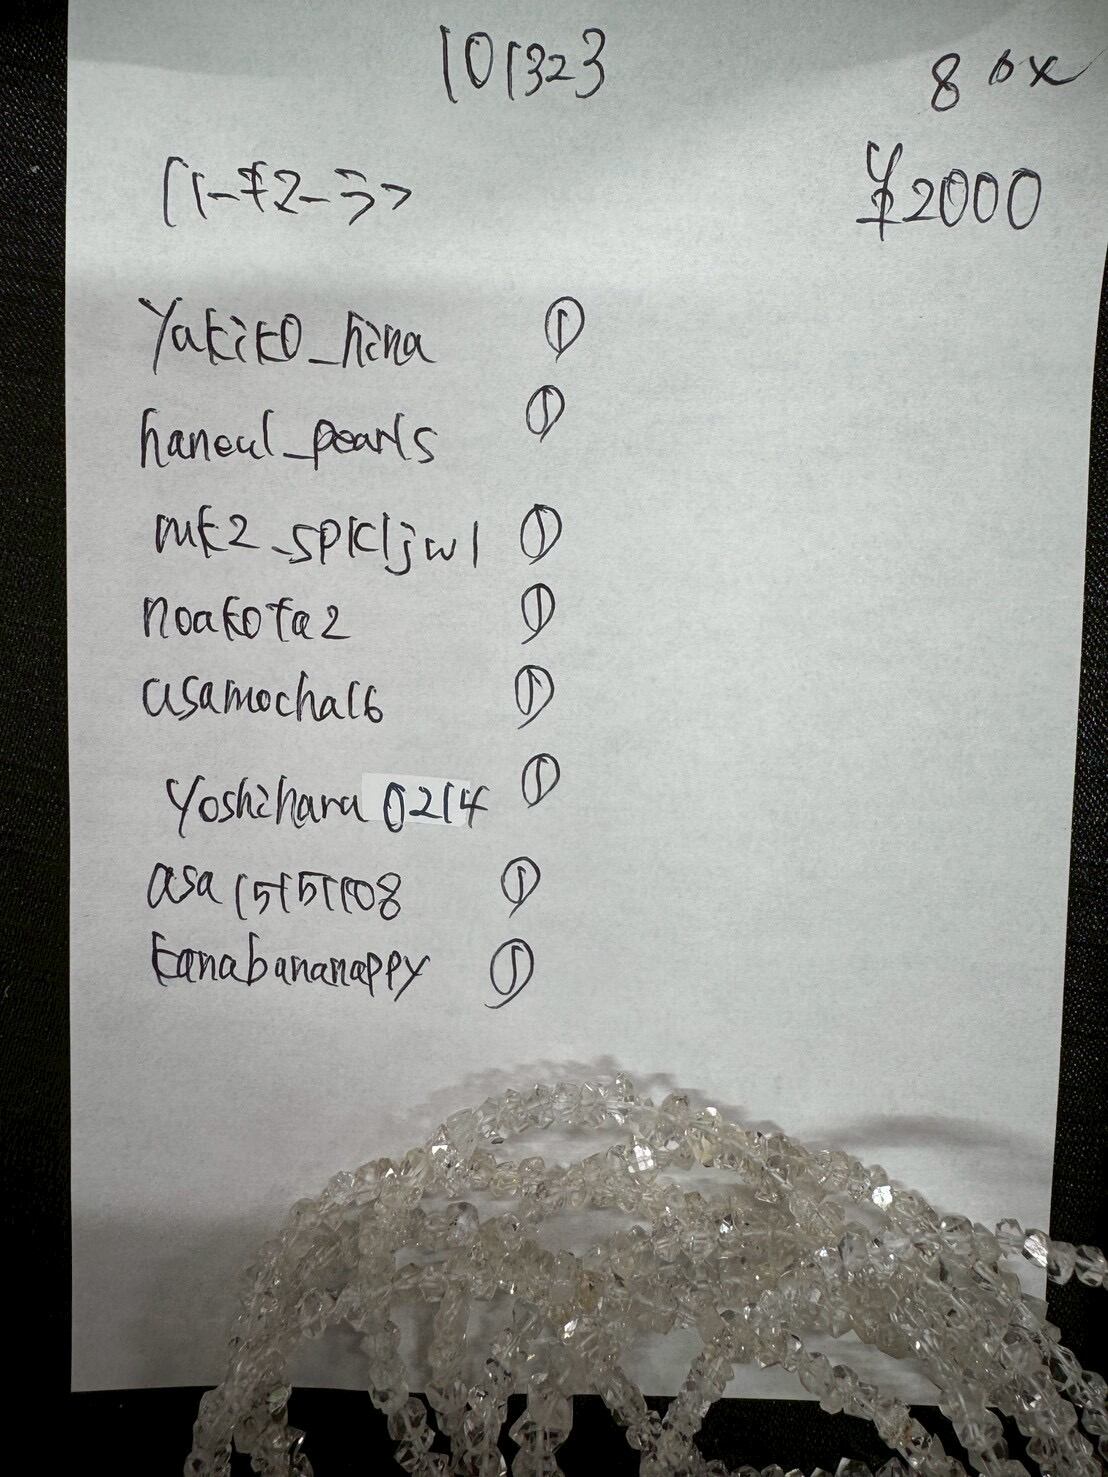 101323
8 本
ハーキマーラフ
¥2000
yakiko_hina ①
haneul_pearls ①
mk2_spkljwl ①
noakota2 ①
asamocha16 ①
yoshihara0214 ①
asa15151108 ①
kanabananappy ①